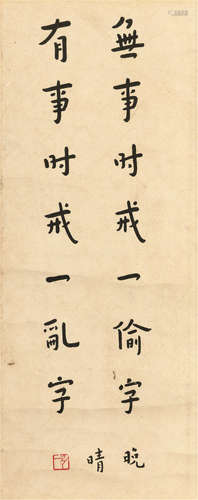 無事时戒一偷字
有事时戒一亂字
晚
晴